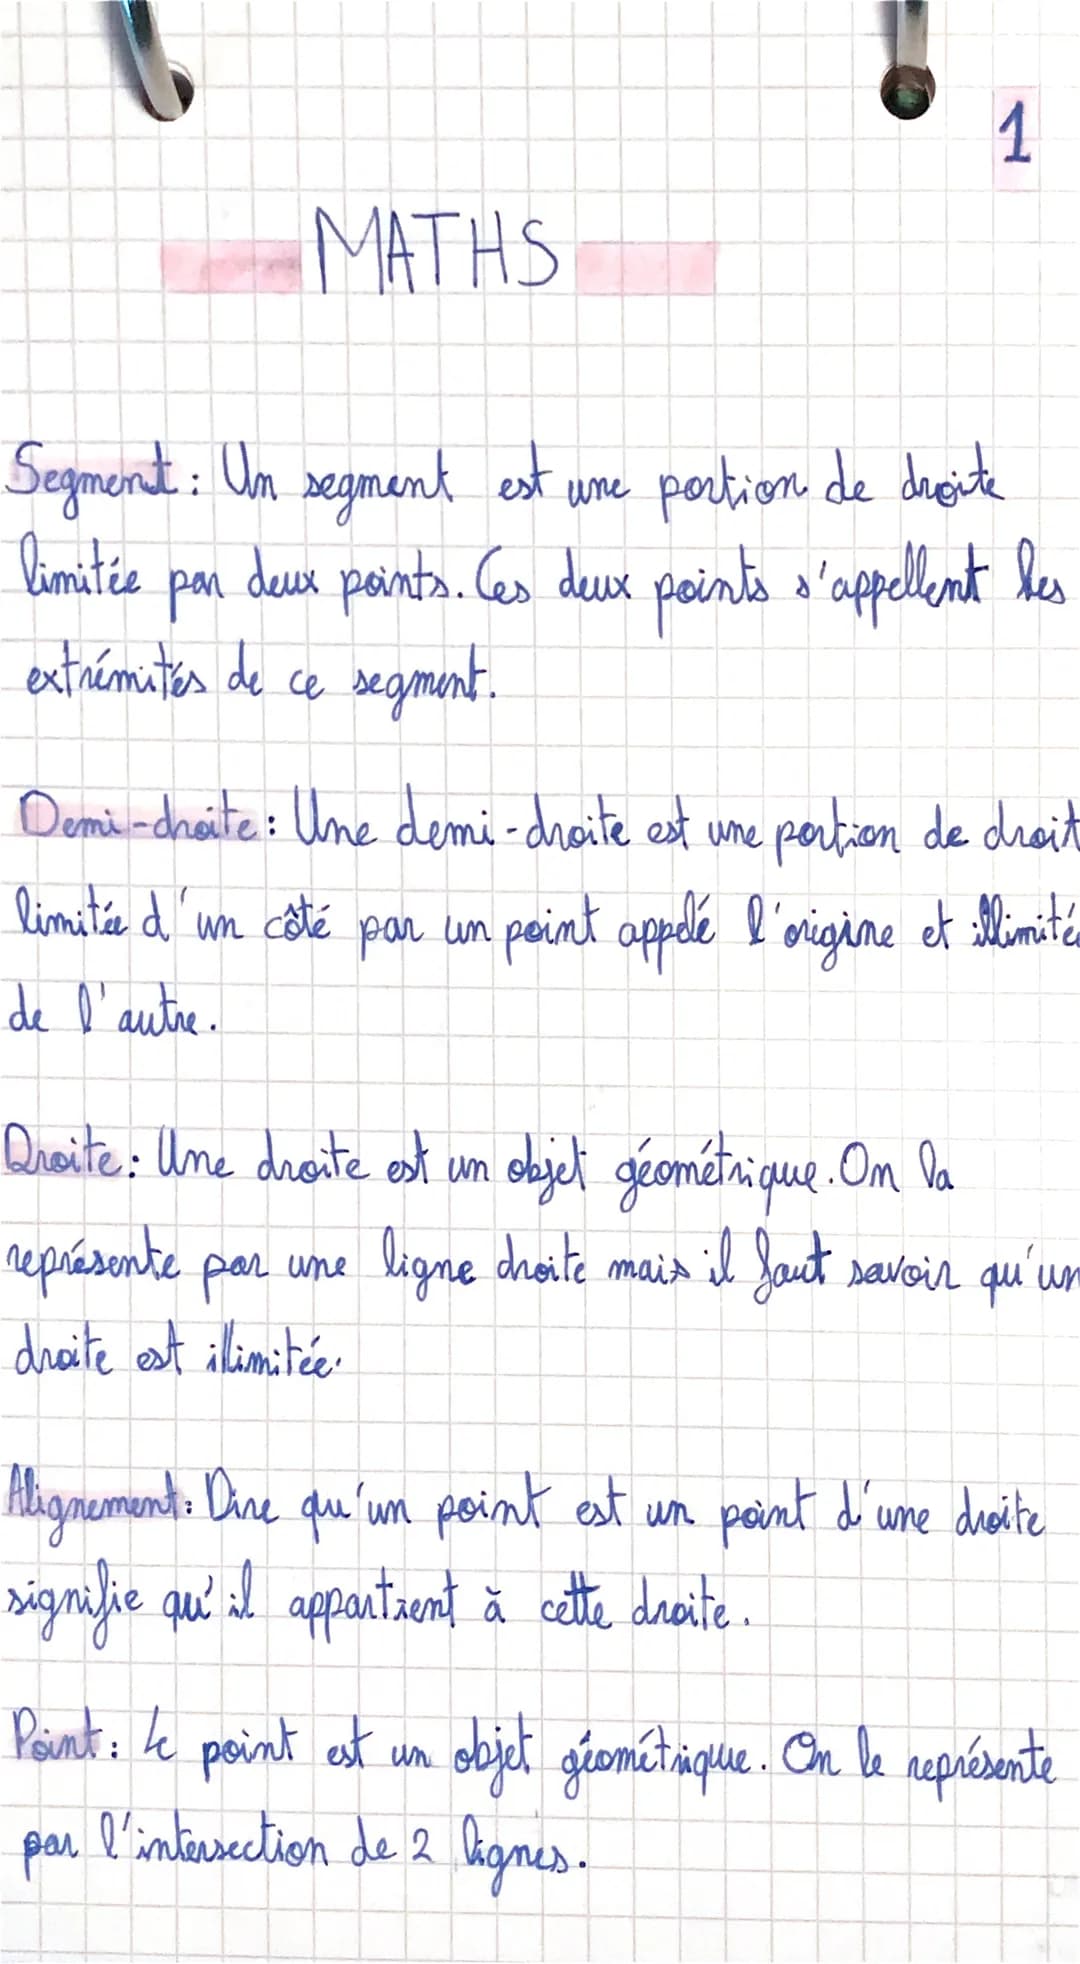 1
MATHS
Segment : Un segment est une portion de droite
limitée par deux points. Ces deux points s'appellent les
extrémités de ce segment.
Demi-droite : Une demi-droite est une portion de droit
limitée d'un côté par un point appelé l'origine et illimitée
de l'autre.
Droite : Une droite est un objet géométrique. On la
représente par une ligne droite mais il faut savoir qu'un
droite est illimitée.
Alignement : Dire qu'un point est un point d'une droite
signifie qu'il appartient à cette droite.
Point : Le point est un objet géométrique. On le représente
par l'intersection de 2 lignes.